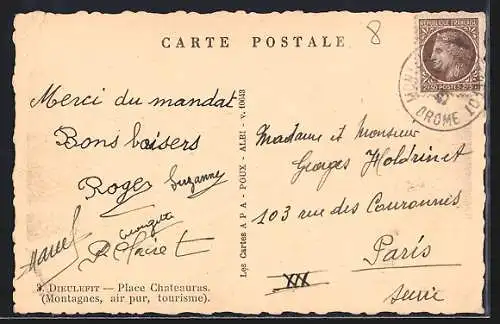 CARTE POSTALE
8
RÉPUBLIQUE FRANÇAISE
2F50 POSTES 2F50
DROME
Merci du mandat
Bons baisers
Roger Suzanny
Georgette
Marcel P. Claire
Les Cartes A P A - POUX - ALBI - v. 10043
Madame et Monsieur
Georges Holdrinet
103 rue des Couronnes
Paris
XX
Seine
3. DIEULEFIT — Place Chateauras.
(Montagnes, air pur, tourisme).